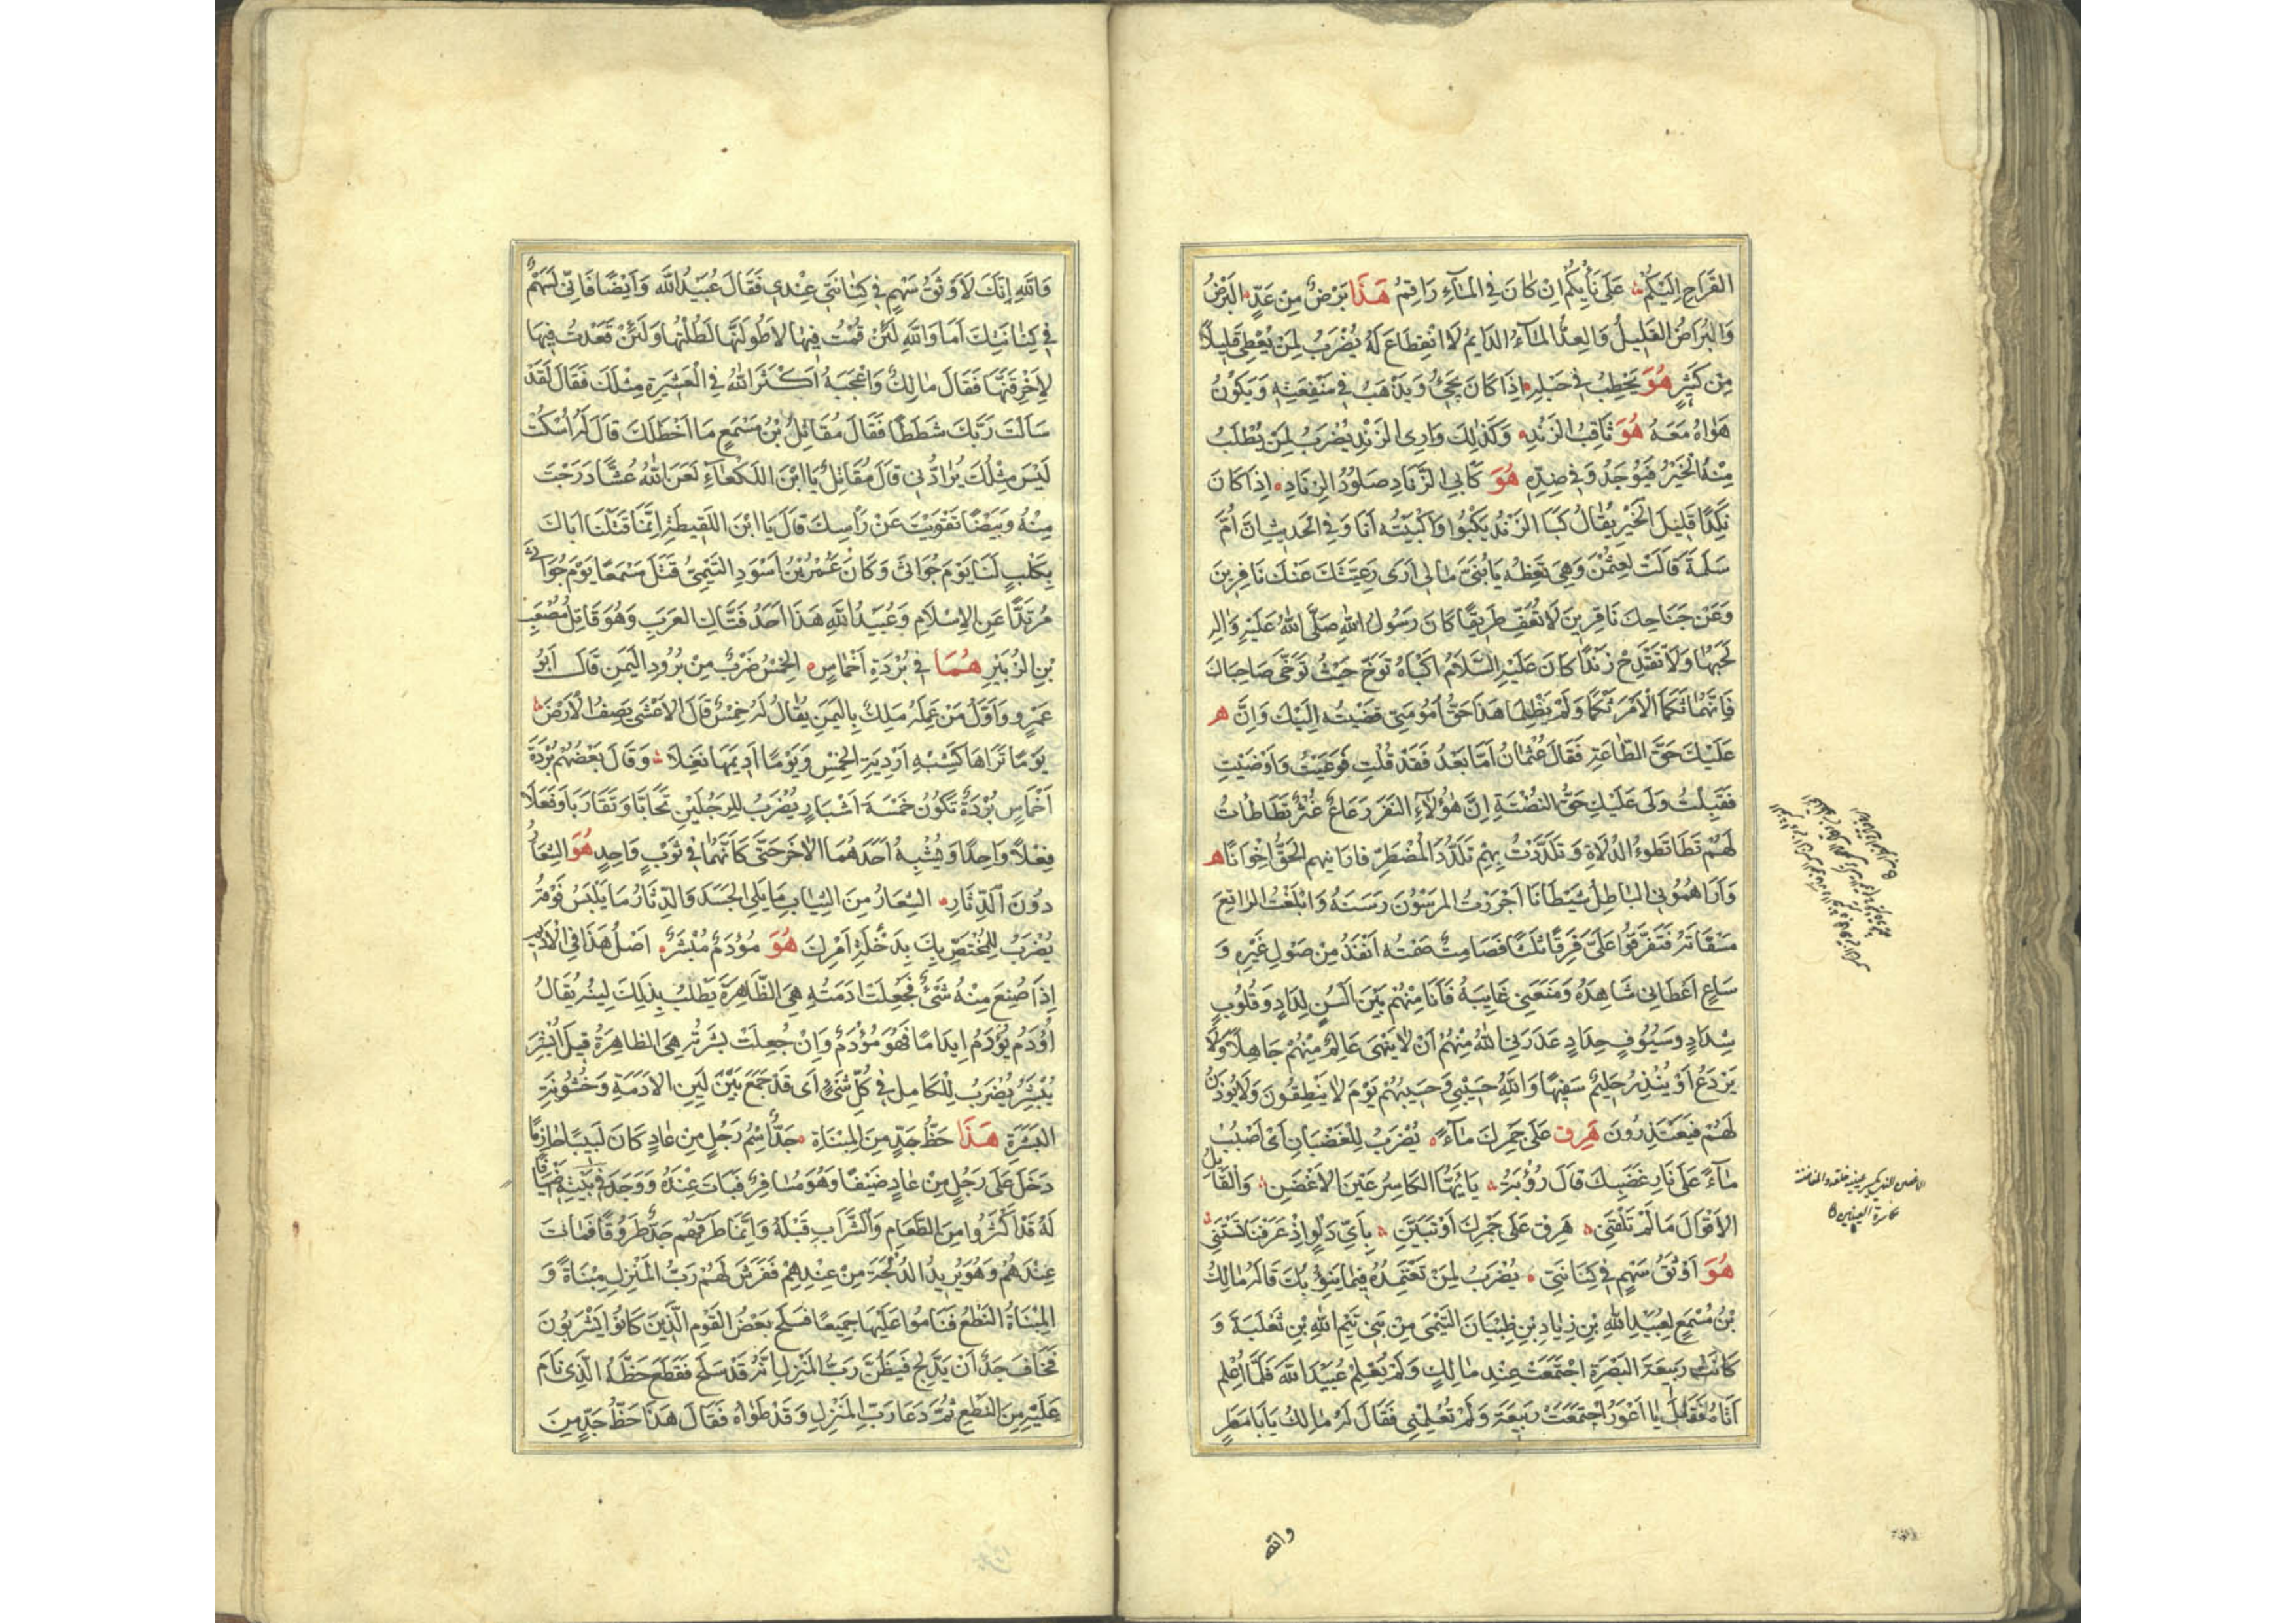 القَرَاحِ اِلَيْكُمْ عَلَى نَأْيِكُمْ اِنْ كَانَ فِى المَآءِ رَاقِمُ هَذَا بَرْضٌ مِنْ عَدٍّ البَرْضُ
وَالبُرَاضُ القَلِيلُ وَالعِدُّ المَآءُ الدَّايِمُ لَا انْقِطَاعَ لَهُ يُضْرَبُ لِمَنْ يُعْطِى قَلِيلًا
مِن كَثِيرٍ هُوَ يَحْطِبُ فِى حَبْلِهِ اِذَا كَانَ يَجِىُ وَيَذْهَبُ فِى مَنْفِعَتِهِ وَيَكُونُ
هَوَاهُ مَعَهُ هُوَ ثَاقِبُ الزَنْدِ وَكَذٰلِكَ وَارِى الزَنْدِ يُضْرَبُ لِمَن يُطْلَبُ
مِنْهُ الْخَيْرُ فَيُوجَدُ وَفِى ضِدِّهِ هُوَ كَابِى الزِّنَادِ صَلُودُ الزِنَادِ اِذَا كَانَ
نَكِدًا قَلِيلَ الْخَيْرِ يُقَالُ كَبَا الزَنْدُ يَكْبُوا وَاَكْبَيْتُهُ اَنَا وَفِى الحَدِيثِ اَنَّ اُمَّ
سَلَمَةَ قَالَتْ لِعُثْمٰنَ وَهِىَ تَعِظُهُ يَا بُنَىَّ مَا لِى اَرَى رَعِيَّتَكَ عَنْكَ نَافِرِينَ
وَعَنْ جَنَاحِكَ نَاقِرِينَ لَا تُعَفِّ طَرِيقًا كَانَ رَسُولُ اللهِ صَلَّى اللهُ عَلَيْهِ وَاٰلِهِ
لَحَبَهَا وَلَا تَقْدَحْ زَنْدًا كَانَ عَلَيْهِ السَّلَامُ اَكْبَاهُ تَوَخَّ حَيْثُ تَوَخَّى صَاحِبَاكَ
فَاِنَّهُمَا ثَكَمَا الْاَمْرَ ثَكْمًا وَلَمْ يَظْلِمَا هَذَا حَقُّ اُمُومَتِى قَضَيْتُهُ اِلَيْكَ وَاِنَّ
عَلَيْكَ حَقَّ الطَّاعَةِ فَقَالَ عُثْمَانُ اَمَّا بَعْدُ فَقَدْ قُلْتِ فَوَعَيْتُ وَاَوْصَيْتِ
فَقَبِلْتُ وَلِى عَلَيْكِ حَقُّ النُصْتَةِ اِنَّ هٰؤُلَآءِ النَفَرَ رَعَاعُ غُثْرٌ تَطَاْطَاْتُ
لَهُمْ تَطَاْطُوءَ الدُلَاةِ وَتَلَدَّدْتُ بِهِمْ تَلَدُّدَ الْمُضْطَرِّ فَارَانِيهِمُ الحَقُّ اِخْوَانًا
وَاَرَاهُمُونِى البَاطِلُ شَيْطَانًا اَجْرَرْتُ المَرْسُونَ رَسَنَهُ وَاَبْلَغْتُ الرَاتِعَ
مَسْقَاتَهُ فَتَفَرَّقُوا عَلَىَّ فِرَقًا ثَلَاثًا فَصَامِتٌ صَمْتُهُ اَنْفَذُ مِنْ صَوْلِ غَيْرِهِ وَ
سَاعٍ اَعْطَانِى شَاهِدَهُ وَمَنَعَنِى غَايِبَهُ فَاَنَا مِنْهُمْ بَيْنَ اَلْسُنٍ لِدَادٍ وَقُلُوبٍ
شِدَادٍ وَسُيُوفٍ حِدَادٍ عَذَرَنِى اللهُ مِنْهُمْ اَنْ لَا يَنْهَى عَالِمٌ مِنْهُمْ جَاهِلًا وَلَا
يَرْدَعُ اَوْ يُنْذِرُ حَلِيمٌ سَفِيهًا وَاللهُ حَسْبِى وَحَسْبُهُمْ يَوْمَ لَا يَنْطِقُونَ وَلَا يُؤذَنُ
لَهُمْ فَيَعْتَذِرُونَ هَرِق عَلَى جَمْرِكَ مَآءً يُضْرَبُ لِلغَضْبَانِ اَىْ اُصْبُبْ
مَآءً عَلَى نَارِ غَضَبِكَ قَالَ رُؤْبَةُ يَا يُّهَا الكَاسِرُ عَيْنَ الاَغْضَنِ وَالْقَايِلُ
الاَقْوَالَ مَا لَمْ تَلْقَنِى هَرِقْ عَلَى جَمْرِكَ اَوْ تَبَيَّنِ بِاَىِّ دَلْوٍ اِذْ عَرَفْنَا تَسْتَنِى
هُوَ اَوْثَقُ سَهْمٍ فِى كِنَانَتِى يُضْرَبُ لِمَنْ تَعْتَمِدُهُ فِيمَا يَنُوبُكَ قَالَهُ مَالِكُ
بْنُ مُسْمِعٍ لِعُبَيْدِ اللهِ بْنِ زِيَادِ بْنِ ظِبْيَانَ التَيْمِى مِنْ بَنِى تَيْمِ اللهِ بْنِ ثَعْلَبَةَ وَ
كَانَتْ رَبِيعَةُ البَصْرَةِ اجْتَمَعَتْ عِنْدِ مَالِكٍ وَلَمْ يُعْلِمْ عُبَيْدَ اللهِ فَلَمَّا اُعْلِم
اَتَاهُ فَقَالَ يَا اَعْوَرُ اجْتَمَعَتْ رَبِيعَةُ وَلَمْ تُعْلِمْنِى فَقَالَ لَهُ مَالِكُ يَا اَبَا مَطَرٍ
والله
وَاللهِ اِنَّكَ لَاَوْثَقُ سَهْمٍ فِى كِنَانَتِى عِنْدِى فَقَالَ عُبَيْدُ اللهِ وَاَيْضًا فَاِنِّى لَسَهْمٌ
فِى كِنَانَتِكَ اَمَا وَاللهِ لَئِنْ قُمْتُ فِيهَا لاَطُولَنَّهَا لَطُلْتُهَا وَلَئِنْ قَعَدْتُ فِيهَا
لاَخْرِقَنَّهَا فَقَالَ مَالِكُ وَاَعْجَبَهُ اَكْثَرَ اللهُ فِى الْعَشِيَرةِ مِثْلَكَ فَقَالَ لَقَدْ
سَاَلْتَ رَبَّكَ شَطَطًا فَقَالَ مُقَاتِلُ بْنُ مَسْمَعٍ مَا اَخْطَلَكَ قَالَ لَهُ اُسْكُتْ
لَيْسَ مِثْلُكَ يُرَادُّنِى قَالَ مُقَاتِلُ يَا ابْنَ اللَكْعَآءِ لَعَنَ اللهُ عُشًّا دَرَجْتَ
مِنْهُ وَبَيْضًا تَقَوَّبَتْ عَنْ رَاْسِكَ قَالَ يَا ابْنَ اللَقِيطَةِ اِنَّمَا قَتَلْنَا اَبَاكَ
بِكَلْبٍ لَنَا يَوْمَ جُوَاثَى وَكَانَ عَمْرُ بْنُ اَسْوَدِ التَيْمِىُّ قَتَلَ مَسْمَعًا يَوْمَ جُوَاثَى
مُرْتَدًّا عَنِ الاِسْلَامِ وَعُبَيْدُ اللهِ هَذَا اَحَدُ فُتَّاكِ العَرَبِ وَهُوَ قَاتِلُ مُصْعَبِ
بْنِ الزُبَيْرِ هُمَا فِى بُرْدَةِ اَخْمَاسٍ الخِمْسُ ضَرْبٌ مِنْ بُرُودِ اليَمَنِ قَالَ اَبُو
عَمْرٍو وَاَوَّلُ مَنْ عَمِلَهُ مَلِكٌ بِاليَمَنِ يُقَالُ لَهُ خِمْسٌ قَالَ الاَعْشَى يَصِفُ الْاَرْضَ
يَوْمًا تَرَاهَا كَشِبْهِ اَرْدِيَةِ الخِمْسِ وَيَوْمًا اَدِيمَهَا نَغِلَا وَقَالَ بَعْضُهُمْ بُرْدَةُ
اَخْمَاسٍ بُرْدَةٌ تَكُونُ خَمْسَةَ اَشْبَارٍ يُضْرَبُ لِلرَجُلَيْنِ تَحَابَّا وَتَقَارَبَا وَفَعَلَا
فِعْلًا وَاحِدًا وَيُشْبِهُ اَحَدُهُمَا الاٰخَرَ حَتَّى كَاَنَّهُمَا فِى ثَوْبٍ وَاحِدٍ هُوَ الشِعَارُ
دُونَ الدِّثَارِ الشِعَارُ مِنَ الثِيَابِ مَا يَلِى الجَسَدَ وَالدِثَارُ مَا يُلْبَسُ فَوْقَهُ
يُضْرَبُ لِلمُخْتَصِّ بِكَ بِدَخْلَةِ اَمْرِكَ هُوَ مُؤْدَمٌ مُبْشَرٌ اَصْلُ هَذَا فِى الْاَدِيمِ
اِذَا صُنِعَ مِنْهُ شَىْءٌ فَجُعِلَتْ اَدَمَتُهُ هِىَ الظَّاهِرَةَ يُطْلَبُ بِذَلِكَ لِينُهُ يُقَالُ
اُؤْدَمُ يُؤْدَمُ اِيدَامًا فَهُوَ مُؤْدَمٌ وَاِنْ جُعِلَتْ بَشَرَتُهُ هِىَ الظَاهِرَةُ قِيلَ اُبْشِرَ
يُبْشَرُ يُضْرَبُ لِلْكَامِلِ فِى كُلِّ شَىْءٍ اَى قَدْ جَمَعَ بَيْنَ لَيِنِ الاَدَمَةِ وَخُشُونَةِ
البَشَرَةِ هَذَا حَظُّ جَدٍّ مِنَ المِبْنَاةِ جَدٌّ اسْمُ رَجُلٍ مِنْ عَادٍ كَانَ لَبِيبًا حَازِمًا
دَخَلَ عَلَى رَجُلٍ مِنْ عَادٍ ضَيْفًا وَهُوَ مُسَافِرٌ فَبَاتَ عِنْدَهُ وَوَجَدَ فِى بَيْتِهِ اَضْيَافًا
لَهُ قَدْ اَكْثَرُوا مِنَ الطَعَامِ وَالشَّرَابِ قَبْلَهُ وَاِنَّمَا طَرَقَهُمْ جَدٌّ طُرُوقًا فَبَاتَ
عِنْدَهُمْ وَهُوَ يُرِيدُ الدُلْجَةَ مِنْ عِنْدِهِمْ فَفَرَشَ لَهُمْ رَبُّ المَنْزِلِ مِبْنَاةً وَ
المِبْنَاةُ النَطْعُ فَنَامُوا عَلَيْهَا جَمِيعًا فَسَلَحَ بَعْضُ القَوْمِ الَّذِينَ كَانُوا يَشْرَبُونَ
فَخَافَ جَدٌّ اَنْ يُدْلِجَ فَيَظُنَّ رَبُّ المَنْزِلِ اَنَّهُ قَدْ سَلَحَ فَقَطَعَ حَظَّهُ الَّذِى نَامَ
عَلَيْهِ مِنَ النَطْعِ ثُمَّ دَعَا رَبَّ المَنْزِلِ وَقَدْ طَوَاهُ فَقَالَ هَذَا حَظُّ جَدٍّ مِنَ